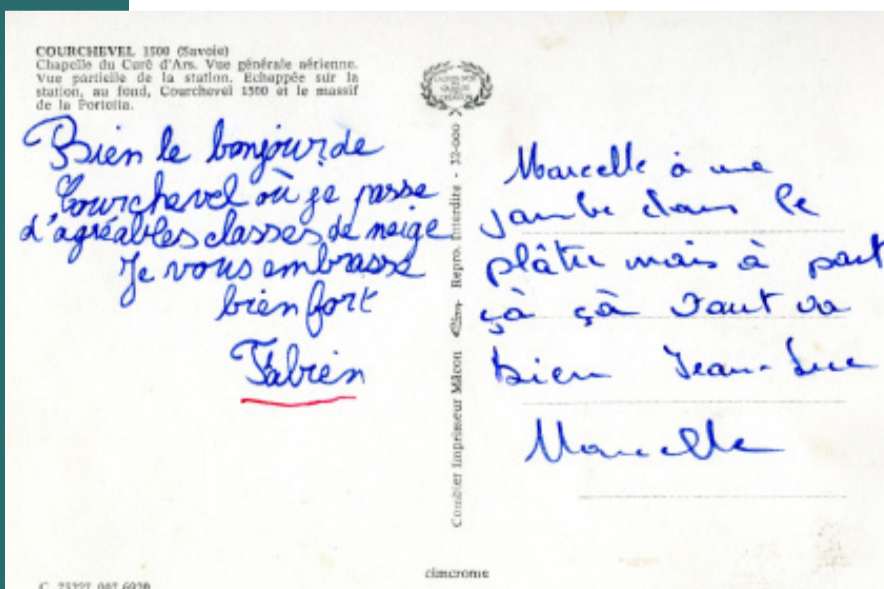 COURCHEVEL 1500 (Savoie)
Chapelle du Curé d'Ars. Vue générale aérienne.
Vue partielle de la station. Echappée sur la
station, au fond, Courchevel 1500 et le massif
de la Portetta.
Bien le bonjour de
Courchevel où je passe
d'agréables classes de neige
Je vous embrasse
bien fort
Fabien
Combier Imprimeur Mâcon Repro. Interdite - 32-000
Marcelle à une
jambe dans le
plâtre mais à part
çà çà vaut va
bien Jean-Luc
Marcelle
cimcrome